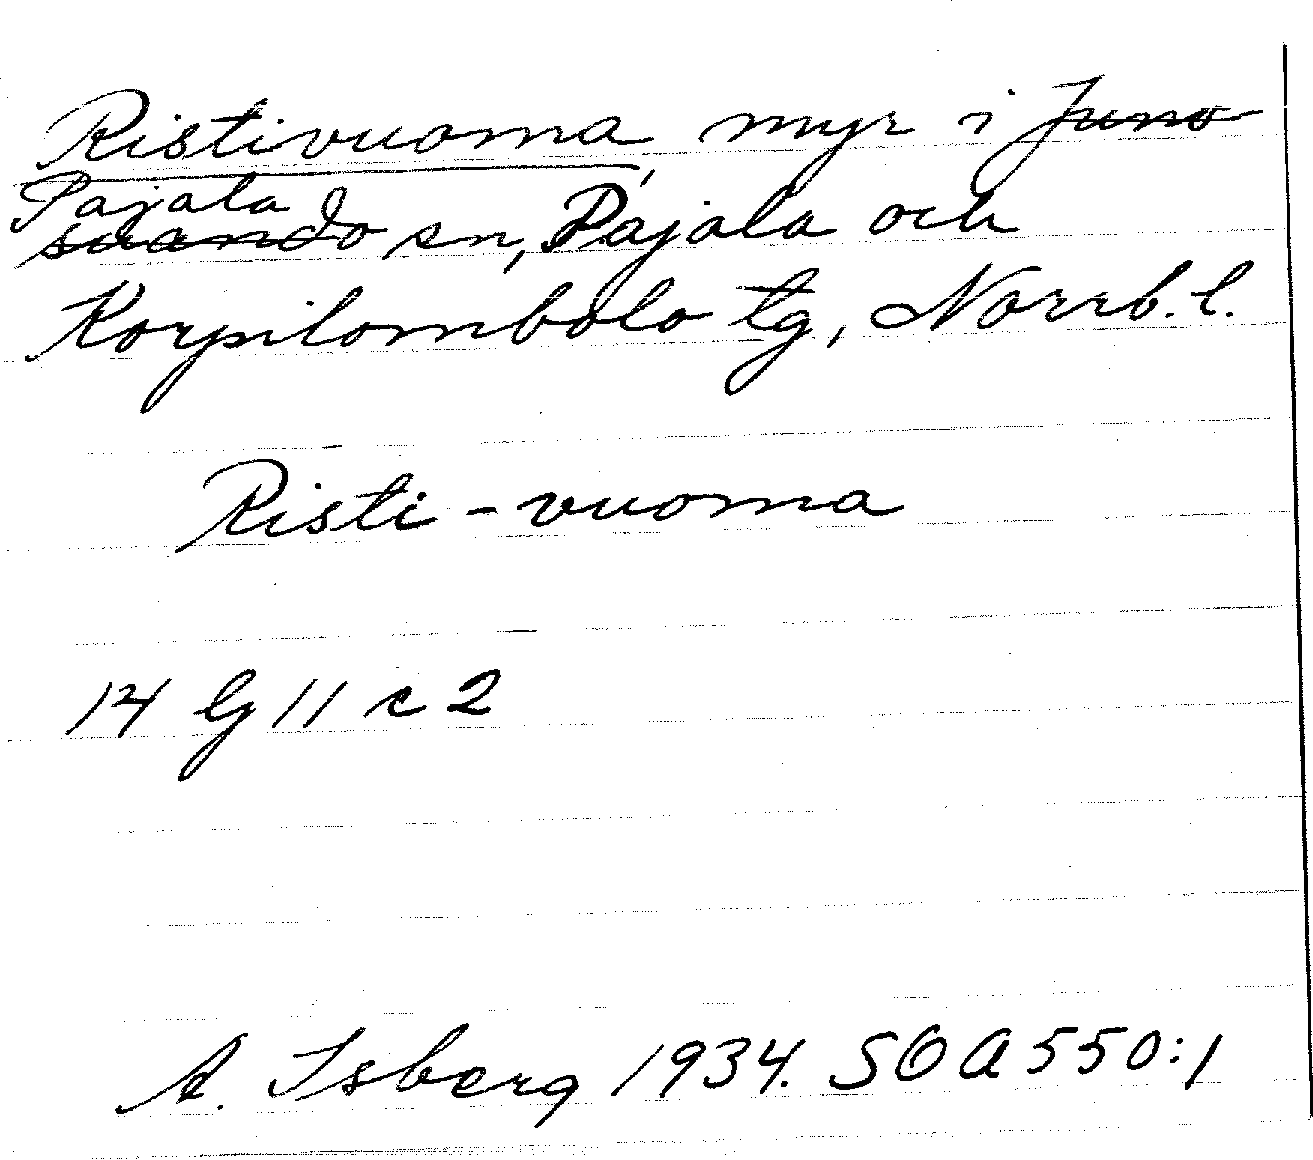 Ristivuoma, myr i Juno
Pajala
suando sn, Pajala och
Korpilombolo tg, Norrb. l.
Risti - vuoma
14 G 11 c 2
A. Isberg 1934. SOA 550:1